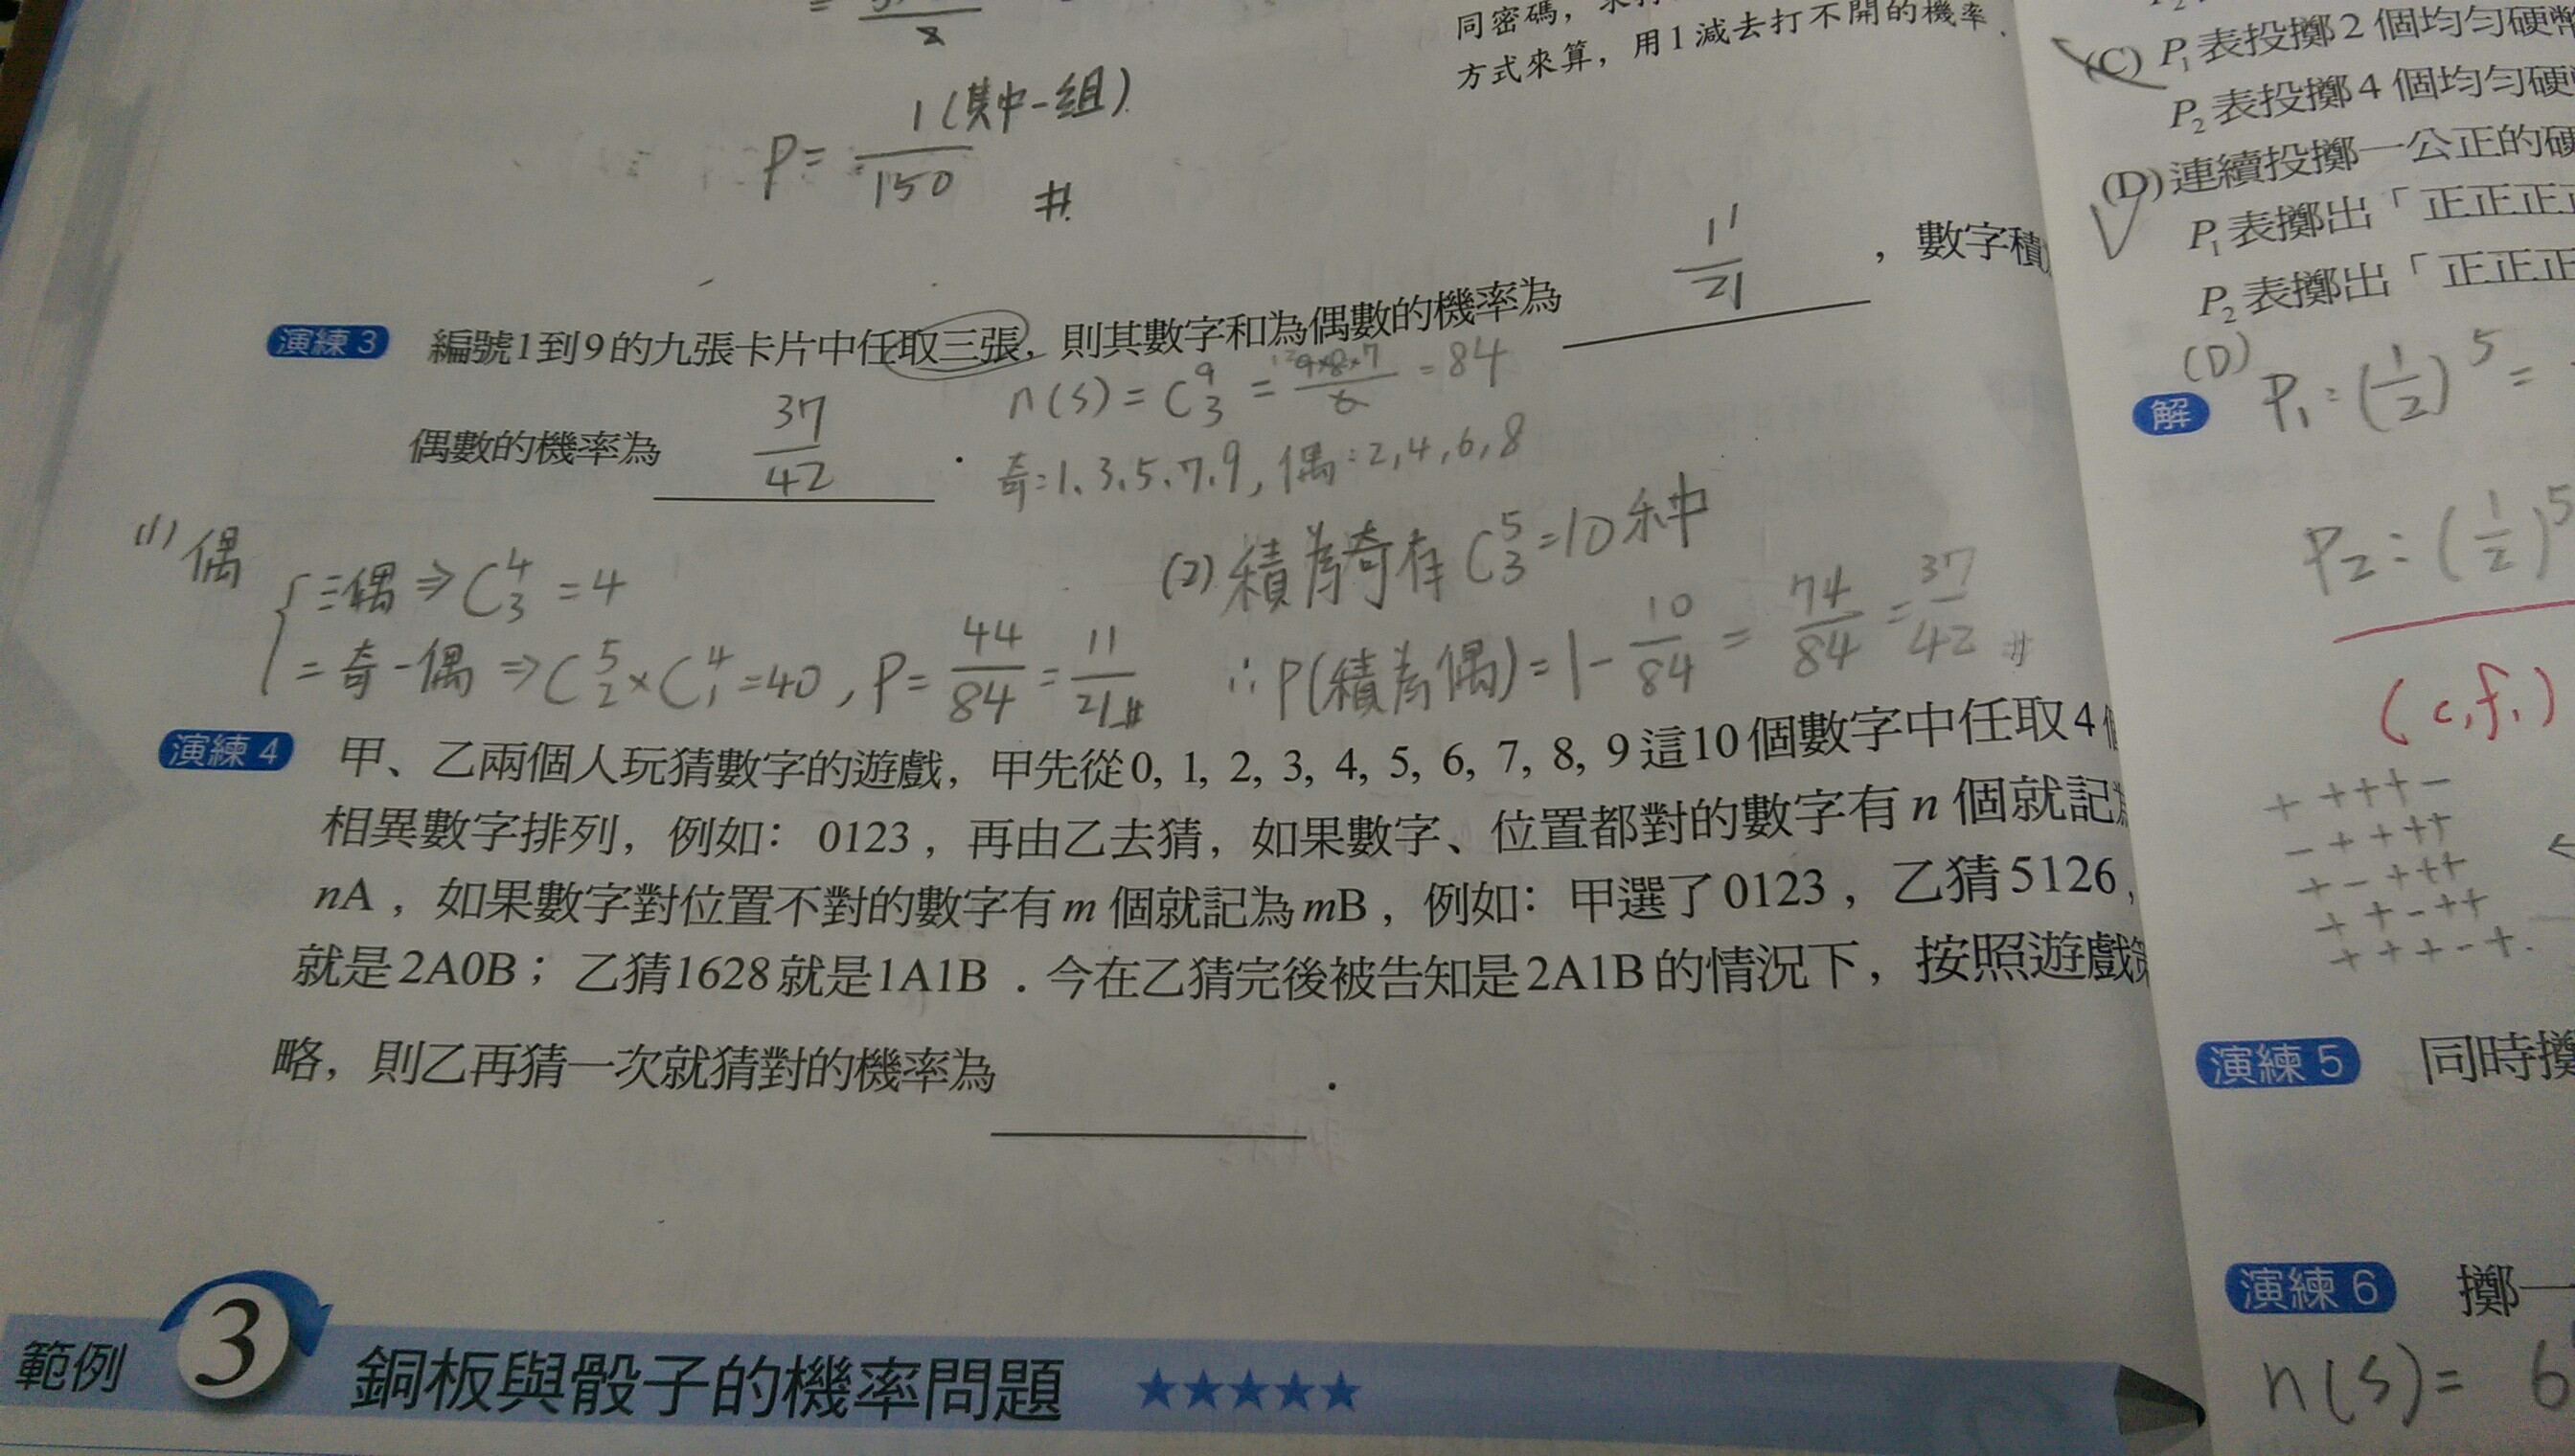 同密碼，
方式來算，用1減去打不開的機率．
P = 1(其中一組) / 150 #
演練3 編號1到9的九張卡片中任取三張，則其數字和為偶數的機率為 11/21 ，數字積
偶數的機率為 37/42 ．
n(S) = C⁹₃ = 9×8×7/6 = 84
奇:1、3、5、7、9, 偶:2,4,6,8
(1) 偶
三偶 ⇒ C⁴₃ = 4
二奇一偶 ⇒ C⁵₂ × C⁴₁ = 40 , P = 44/84 = 11/21 #
(2) 積為奇有 C⁵₃ = 10 种
∴ P(積為偶) = 1 - 10/84 = 74/84 = 37/42 #
演練4 甲、乙兩個人玩猜數字的遊戲，甲先從0, 1, 2, 3, 4, 5, 6, 7, 8, 9這10個數字中任取4
相異數字排列，例如：0123，再由乙去猜，如果數字、位置都對的數字有n個就記
nA，如果數字對位置不對的數字有m個就記為mB，例如：甲選了0123，乙猜5126，
就是2A0B；乙猜1628就是1A1B．今在乙猜完後被告知是2A1B的情況下，按照遊戲策
略，則乙再猜一次就猜對的機率為 ．
範例 3 銅板與骰子的機率問題 ★★★★★
(C) P₁表投擲2個均勻硬幣
P₂表投擲4個均勻硬
(D) 連續投擲一公正的硬
P₁表擲出「正正正
P₂表擲出「正正正
(D)
解 P₁ : (1/2)⁵ =
P₂ : (1/2)⁵
(c,f,)
+ + + + -
- + + + +
+ - + + +
+ + - + +
+ + + - +.
演練5 同時擲
演練6 擲一
n(S) = 6